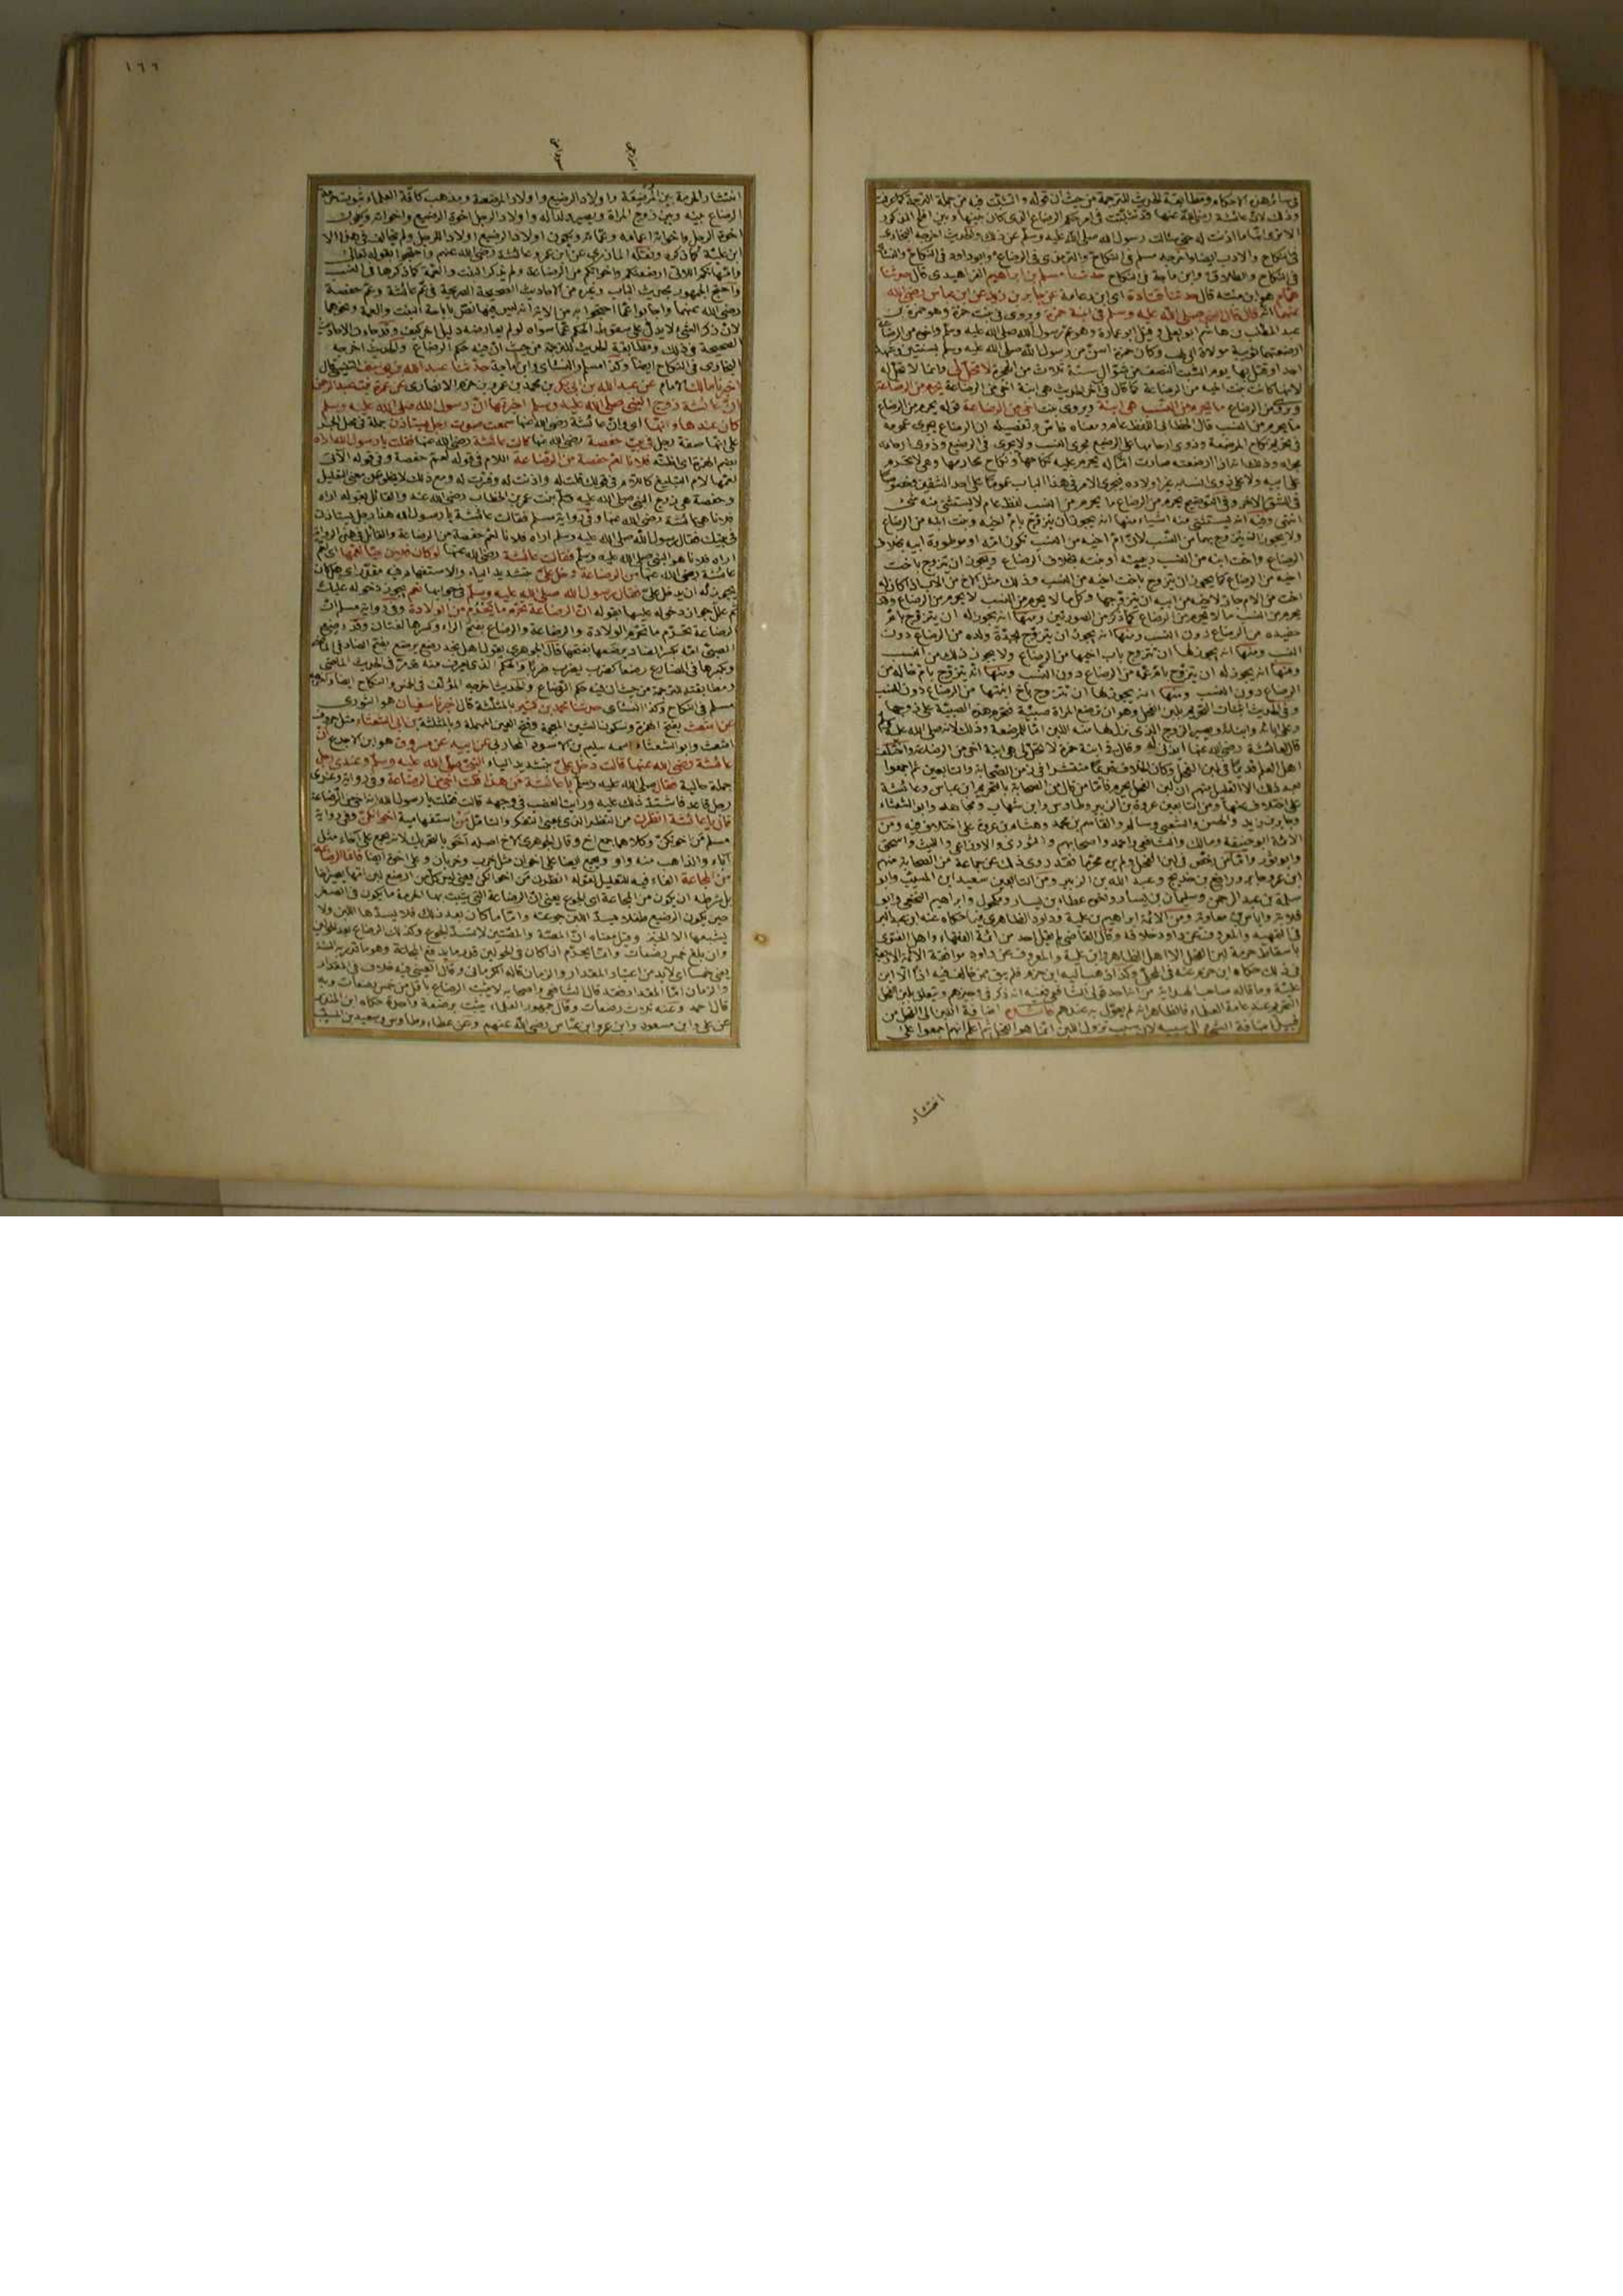 في سائر هذه الاحكام ومطابقة الحديث للترجمة من حيث ان قوله والتثبت فيه من جملة الترجمة كما عرفت
وذلك لان عائشة رضي الله عنها قد تثبتت في امر حكم الرضاع الذي كان بينها وبين افلح المذكور
الا ترى انها ما اذنت له حتى سالت رسول الله صلى الله عليه وسلم عن ذلك والحديث اخرجه البخاري
في النكاح والادب ايضا واخرجه مسلم في النكاح والترمذي في الرضاع وابو داود في النكاح والنسائي
في النكاح والطلاق وابن ماجة في النكاح حدثنا مسلم بن ابراهيم الفراهيدي قال حدثنا
همام هو ابن منبه قال حدثنا قتادة اي ابن دعامة عن جابر بن زيد عن ابن عباس رضي الله
عنهما انه قال قال النبي صلى الله عليه وسلم في ابنة حمزة وروي في بنت حمزة وهو حمزة بن
عبد المطلب بن هاشم ابو يعلى وقيل ابو عمارة وهو عم رسول الله صلى الله عليه وسلم واخوه من الرضاعة
ارضعتهما ثويبة مولاة ابي لهب وكان حمزة اسن من رسول الله صلى الله عليه وسلم بسنتين وشهد
احدا وقتل بها يوم السبت النصف من شوال سنة ثلاث من الهجرة لا تحل لي وانما لا تحل له
لانها كانت بنت اخيه من الرضاعة كما قال في آخر الحديث هي ابنة اخي من الرضاعة يحرم من الرضاعة
وروي من الرضاع ما يحرم من النسب هي ابنة ويروى بنت اخي من الرضاعة قوله يحرم من الرضاع
ما يحرم من النسب قال الخطابي اللفظ عام ومعناه خاص وتفصيله ان الرضاع يجري عمومه
في تحريم نكاح المرضعة وذوي ارحامها على الرضيع مجرى النسب ولا يجري في الرضيع وذوي ارحامه
مجراه وذلك انه اذا ارضعته صارت اما له يحرم عليه نكاحها ونكاح محارمها وهي لا تحرم
على ابيه ولا على ذوي انسابه غير اولاده فيجري الامر في هذا الباب عموما على احد الشقين وخصوصا
في الشق الآخر وفي التوضيح يحرم من الرضاع ما يحرم من النسب لفظ عام لا يستثنى منه شيء
انتهى وفيه انه يستثنى منه اشياء منها انه يجوز ان يتزوج بام اخيه وبنت ابنه من الرضاع
ولا يجوز ان يتزوج بهما من النسب لان ام اخيه من النسب تكون امه او موطوءة ابيه بخلاف
الرضاع واخت ابنه من النسب ربيبته او بنته بخلاف الرضاع ويجوز ان يتزوج باخت
اخيه من الرضاع كما يجوز ان يتزوج باخت اخيه من النسب وذلك مثل الاخ من الاب اذا كان له
اخت من الام جاز لاخيه من ابيه ان يتزوجها وكل ما لا يحرم من النسب لا يحرم من الرضاع وقد
يحرم من النسب ما لا يحرم من الرضاع كما ذكر من الصورتين ومنها انه يجوز له ان يتزوج بام
حفيده من الرضاع دون النسب ومنها انه يجوز ان يتزوج بجدة ولده من الرضاع دون
النسب ومنها انه يجوز لها ان تتزوج باب اخيها من الرضاع ولا يجوز ذلك من النسب
ومنها انه يجوز له ان يتزوج بام عمه من الرضاع دون النسب ومنها انه يتزوج بام خاله من
الرضاع دون النسب ومنها انه يجوز لها ان تتزوج باخ ابنتها من الرضاع دون النسب
وفي الحديث اثبات التحريم بلبن الفحل وهو ان ترضع المراة صبية فتحرم هذه الصبية على زوجها
وعلى آبائه وابنائه ويصير الزوج الذي نزل لها منه اللبن ابا للمرضعة وذلك لانه صلى الله عليه وسلم
قال لعائشة رضي الله عنها ائذني له وقال في ابنة حمزة لا تحل لي هي ابنة اخي من الرضاعة واختلف
اهل العلم قديما في لبن الفحل وكان الخلاف فيه منتشرا في زمن الصحابة والتابعين ثم اجمعوا
بعد ذلك الا القليل منهم ان لبن الفحل يحرم فاما من قال من الصحابة بالتحريم ابن عباس وعائشة
على اختلاف عنها ومن التابعين عروة بن الزبير وطاوس وابن شهاب ومجاهد وابو الشعثاء
وجابر بن زيد والحسن والشعبي وسالم والقاسم بن محمد وهشام بن عروة على اختلاف فيه ومن
الائمة ابو حنيفة ومالك والشافعي واحمد واصحابهم والثوري والاوزاعي والليث واسحق
وابو ثور واما من رخص في لبن الفحل ولم يره محرما فقد روي ذلك عن جماعة من الصحابة منهم
ابن عمر وجابر ورافع بن خديج وعبد الله بن الزبير ومن التابعين سعيد ابن المسيب وابو
سلمة بن عبد الرحمن وسليمان بن يسار واخوه عطاء بن يسار ومكحول وابراهيم النخعي وابو
قلابة واياس بن معاوية ومن الائمة ابراهيم بن علية وداود الظاهري فيما حكاه عنه ابن عبد البر
في التمهيد والمعروف عن داود خلافه وقال القاضي لم يقل احد من ائمة الفقهاء واهل الفتوى
باسقاط حرمة لبن الفحل الا اهل الظاهر وابن علية والمعروف عن داود موافقة الائمة الاربعة
انتشار
١٦٦
انتشار الحرمة بين المرضعة واولاد الرضيع واولاد المرضعة ومذهب كافة العلماء ثبوت حرمة
الرضاع بينه وبين زوج المراة ويصير ولدا له واولاد الرجل اخوة الرضيع واخواته ويكون
اخوة الرجل واخواته اعمامه وعماته ويكون اولاد الرضيع اولادا للرجل ولم يخالف في هذا الا
ابن علية كما ذكره ونقله المازري عن ابن عمر وعائشة رضي الله عنهم واحتجوا بقوله تعالى
وامهاتكم اللاتي ارضعنكم واخواتكم من الرضاعة ولم يذكر البنت والعمة كما ذكرها في النسب
واحتج الجمهور بحديث الباب وغيره من الاحاديث الصحيحة الصريحة في عم عائشة وعم حفصة
رضي الله عنهما واجابوا عما احتجوا به من الآية انه ليس فيها نص باباحة البنت والعمة ونحوهما
لان ذكر الشيء لا يدل على سقوط الحكم عما سواه لو لم يعارضه دليل اخر كيف وقد جاءت الاحاديث
الصحيحة في ذلك ومطابقة الحديث للترجمة من حيث ان فيه حكم الرضاع والحديث اخرجه
البخاري في النكاح ايضا وكذا مسلم والنسائي وابن ماجة حدثنا عبد الله بن يوسف التنيسي قال
اخبرنا مالك الامام عن عبد الله بن ابي بكر بن محمد بن عمرو بن حزم الانصاري عن عمرة بنت عبد الرحمن
ان عائشة زوج النبي صلى الله عليه وسلم اخبرتها ان رسول الله صلى الله عليه وسلم
كان عندها وانها اي وان عائشة رضي الله عنها سمعت صوت رجل يستاذن جملة في محل الجر
على انها صفة رجل في بيت حفصة رضي الله عنها قالت عائشة رضي الله عنها فقلت يا رسول الله اراه
بضم الهمزة اي اظنه فلانا لعم حفصة من الرضاعة اللام في قوله لعم حفصة وفي قوله الآتي
لعمها لام التبليغ كاللام في قولك قلت له واذنت له وفسرت له ومع ذلك لا يخلو عن معنى التعليل
وحفصة هي زوج النبي صلى الله عليه وسلم بنت عمر بن الخطاب رضي الله عنه والقائل بقوله اراه
فلانا هي عائشة رضي الله عنها وفي رواية مسلم فقالت عائشة يا رسول الله هذا رجل يستاذن
في بيتك فقال رسول الله صلى الله عليه وسلم اراه فلانا لعم حفصة من الرضاعة والقائل في هذه الرواية
اراه فلانا هو النبي صلى الله عليه وسلم فقالت عائشة رضي الله عنها لو كان فلان حيا لعمها اي لعم
عائشة رضي الله عنها من الرضاعة دخل علي بتشديد الياء والاستفهام فيه مقدر اي هل كان
يجوز له ان يدخل علي فقال رسول الله صلى الله عليه وسلم في جوابها نعم يجوز دخوله عليك
ثم علل جواز دخوله عليها بقوله ان الرضاعة تحرم ما يحرم من الولادة وفي رواية مسلم ان
الرضاعة تحرم ما تحرم الولادة والرضاعة والرضاع بفتح الراء وكسرها لغتان وقد رضع
الصبي امه بكسر الضاد يرضعها بفتحها قال الجوهري يقول اهل نجد رضع يرضع بفتح الضاد في الماضي
وبكسرها في المضارع رضعا كضرب يضرب ضربا والحكم الذي يعرف منه قد مر في الحديث الماضي
ومطابقته للترجمة من حيث ان فيه حكم الرضاع والحديث اخرجه المؤلف في الخمس والنكاح ايضا واخرجه
مسلم في النكاح وكذا النسائي حدثنا محمد بن كثير بالمثلثة قال اخبرنا سفيان هو الثوري
عن اشعث بفتح الهمزة وسكون الشين المعجمة وفتح العين المهملة وبالمثلثة بن ابي الشعثاء مثل حروف
اشعث وابو الشعثاء اسمه سليم بن الاسود المحاربي عن ابيه عن مسروق هو ابن الاجدع ان
عائشة رضي الله عنها قالت دخل علي بتشديد الياء النبي صلى الله عليه وسلم وعندي رجل
جملة حالية فقال صلى الله عليه وسلم يا عائشة من هذا قلت اخي من الرضاعة وفي رواية وعندي
رجل قاعد فاشتد ذلك عليه ورايت الغضب في وجهه قالت فقلت يا رسول الله انه اخي من الرضاعة
قال يا عائشة انظرن من النظر الذي يعني التفكر والتامل من استفهامية اخوانكن وفي رواية
مسلم من اخوتكن وكلاهما جمع اخ وقال الجوهري الاخ اصله اخو بالتحريك لانه يجمع على آخاء مثل
آباء والذاهب منه واو ويجمع ايضا على اخوان مثل خرب وخربان وعلى اخوة ايضا فانما الرضاعة
من المجاعة الفاء فيه للتعليل لقوله انظرن من اخوانكن
بل شرطه ان يكون من المجاعة اي الجوع يعني ان الرضاعة التي يثبت بها الحرمة ما يكون في الصغر
حين يكون الرضيع طفلا يسد اللبن جوعته واما ما كان بعد ذلك فلا يسدها اللبن ولا
يشبعها الا الخبز وقيل معناه ان المصة والمصتين لا تسد الجوع وكذلك الرضاع بعد الحولين
وان بلغ خمس رضعات وانما يحرم اذا كان في الحولين قدر ما يدفع المجاعة وهو ما قدر به السنة
يعني خمسا اي لا بد من اعتبار المقدار والزمان قاله الكرماني وقال العيني فيه خلاف في المقدار
والزمان اما المقدار فقد قال الشافعي واصحابه لا يثبت الرضاع باقل من خمس رضعات وبه
قال احمد وعنه ثلاث رضعات وقال جمهور العلماء يثبت برضعة واحدة حكاه ابن المنذر
عن علي وابن مسعود وابن عمر وابن عباس رضي الله عنهم وعن عطاء وطاوس وسعيد بن المسيب